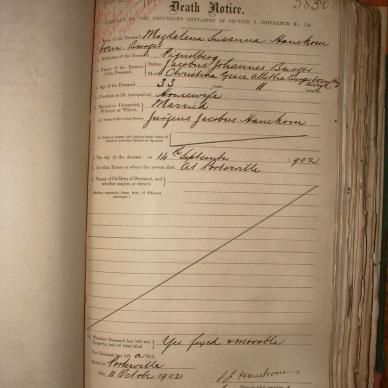 3830
Death Notice.
PURSUANT TO THE PROVISIONS CONTAINED IN SECTION 9, ORDINANCE No. 104.
Name of the Deceased Magdalena Susanna Hanekom
born Burger
Birthplace of the Deceased Piquetberg
Names of the Parents of the Deceased Father Jacobus Johannes Burger
Mother Christina Grace Aletha
Age of the Deceased 33 years 11 months
Condition in life (occupation) Housewife
Married or Unmarried, Widower or Widow Married
Name of Surviving Spouse Jurgens Jacobus Hanekom
The day of the decease: on 14th September 1902
At what House or where the person died At Porterville
Names of Children of Deceased, and whether majors or minors
Whether Deceased has left any Property, and of what kind Yes fixed & movable
The Deceased has left a Will
Dated at Porterville
this 11 October 1902
J J Hanekom